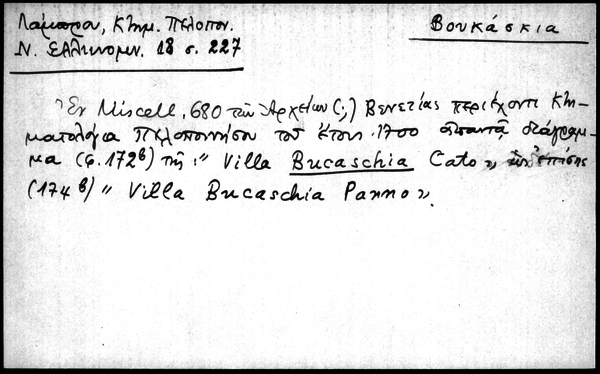 Λάμπρου, Κτημ. Πελοπον.
Ν. Ελληνομν. 18 σ. 227
Βουκάσκια
Ἐν Miscell. 680 τῶν Ἀρχείων (;) Βενετίας περιέχοντι Κτη-
ματολόγια Πελοποννήσου τοῦ ἔτους 1700 ἀπαντᾷ διάγραμ-
μα (φ. 172β) τῆς " Villa Bucaschia Cato ", ἐπίσης
(174β) " Villa Bucaschia Panno ".